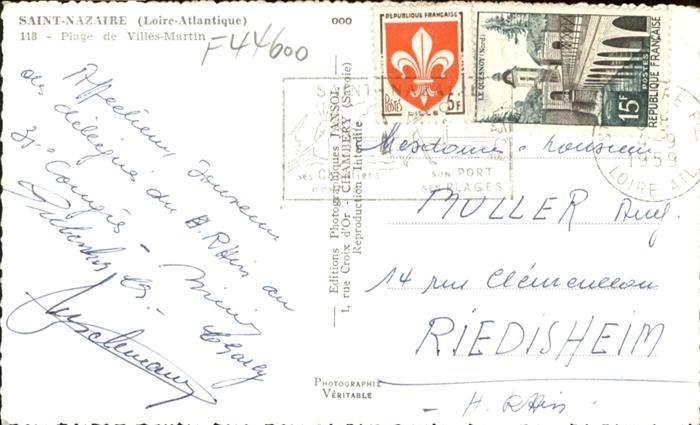 SAINT-NAZAIRE (Loire-Atlantique)
118 - Plage de Villès-Martin
F44600
Affectueux Souvenir
des délégués du H. Rhin au
Congrès -
Charly
Editions Photographiques JANSOL
1, rue Croix d'Or - CHAMBÉRY (Savoie)
Reproduction Interdite
PHOTOGRAPHIE
VÉRITABLE
REPUBLIQUE FRANÇAISE
POSTES
5F
LILLE
LE QUESNOY (Nord)
15F
POSTES
REPUBLIQUE FRANÇAISE
SAINT-NAZAIRE
SES
SON PORT
SES PLAGES
1959
LOIRE ATL
Mesdames - Monsieur
MULLER Aug.
14 rue Clémenceau
RIEDISHEIM
- H. Rhin -